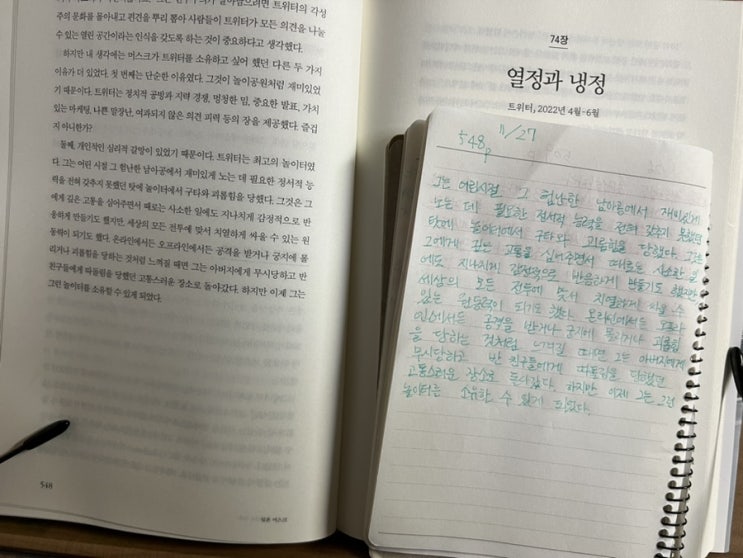 주의 문화를 몰아내고 편견을 뿌리 뽑아 사람들이 트위터가 모든 의견을 나눌
수 있는 열린 공간이라는 인식을 갖도록 하는 것이 중요하다고 생각했다.
하지만 내 생각에는 머스크가 트위터를 소유하고 싶어 했던 다른 두 가지
이유가 더 있었다. 첫 번째는 단순한 이유였다. 그것이 놀이공원처럼 재미있었
기 때문이다. 트위터는 정치적 공방과 지력 경쟁, 멍청한 밈, 중요한 발표, 가치
있는 마케팅, 나쁜 말장난, 여과되지 않은 의견 피력 등의 장을 제공했다. 즐겁
지 아니한가?
둘째, 개인적인 심리적 갈망이 있었기 때문이다. 트위터는 최고의 놀이터였
다. 그는 어린 시절 그 험난한 남아공에서 재미있게 노는 데 필요한 정서적 능
력을 전혀 갖추지 못했던 탓에 놀이터에서 구타와 괴롭힘을 당했다. 그것은 그
에게 깊은 고통을 심어주면서 때로는 사소한 일에도 지나치게 감정적으로 반
응하게 만들기도 했지만, 세상의 모든 전투에 맞서 치열하게 싸울 수 있는 원
동력이 되기도 했다. 온라인에서든 오프라인에서든 공격을 받거나 궁지에 몰
리거나 괴롭힘을 당하는 것처럼 느껴질 때면 그는 아버지에게 무시당하고 반
친구들에게 따돌림을 당했던 고통스러운 장소로 돌아갔다. 하지만 이제 그는
그런 놀이터를 소유할 수 있게 되었다.
548
일론 머스크
74장
열정과 냉정
트위터, 2022년 4월~6월
548p 11/27
그는 어린시절 그 험난한 남아공에서 재미있게
노는 데 필요한 정서적 능력을 전혀 갖추지 못했던
탓에 놀이터에서 구타와 괴롭힘을 당했다. 그것은
그에게 깊은 고통을 심어주면서 때로는 사소한 일
에도 지나치게 감정적으로 반응하게 만들기도 했지만
세상의 모든 전투에 맞서 치열하게 싸울 수
있는 원동력이 되기도 했다. 온라인에서든 오프라
인에서든 공격을 받거나 궁지에 몰리거나 괴롭힘
을 당하는 것처럼 느껴질 때면 그는 아버지에게
무시당하고 반 친구들에게 따돌림을 당했던
고통스러운 장소로 돌아갔다. 하지만 이제 그는 그런
놀이터를 소유할 수 있게 되었다.